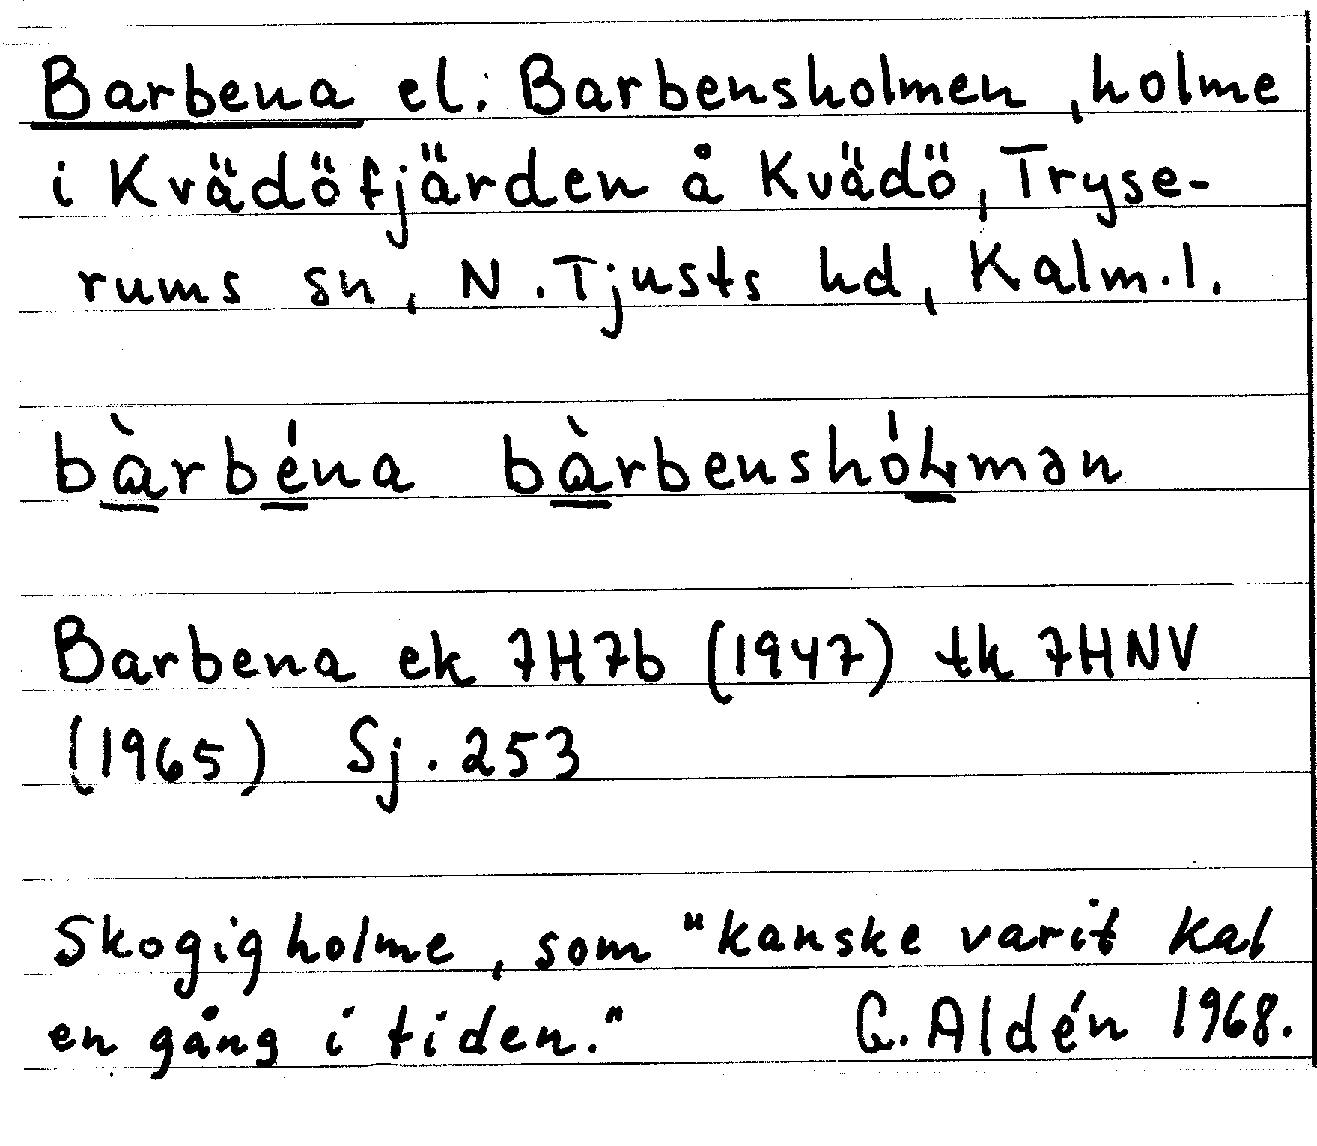 Barbena el. Barbensholmen, holme
i Kvädöfjärden å Kvädö, Tryse-
rums sn, N. Tjusts hd, Kalm. l.
bàrbéna bàrbenshóLmən
Barbena ek 7H7b (1947) tk 7HNV
(1965) Sj. 253
Skogig holme, som "kanske varit kal
en gång i tiden." G. Aldén 1968.